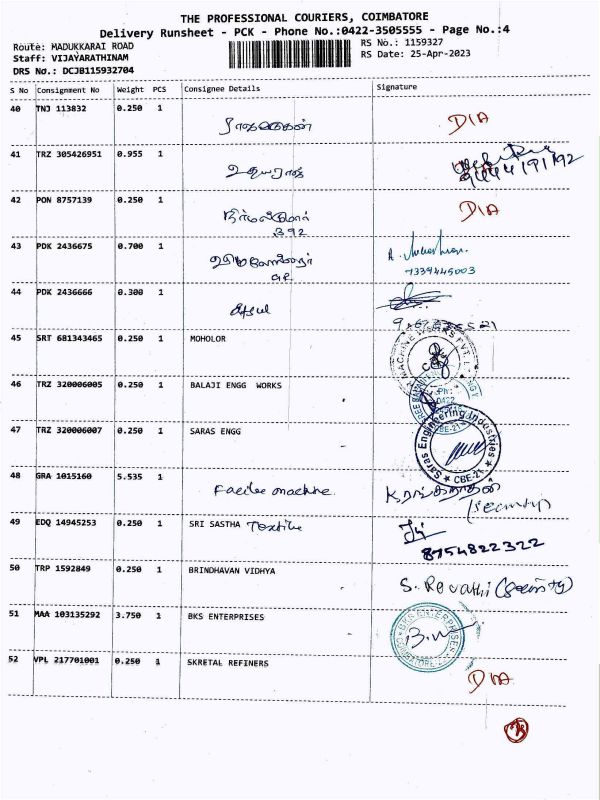 THE PROFESSIONAL COURIERS, COIMBATORE
Delivery Runsheet - PCK - Phone No.:0422-3505555 - Page No.:4
Route: MADUKKARAI ROAD
RS No.: 1159327
Staff: VIJAYARATHINAM
RS Date: 25-Apr-2023
DRS No.: DCJB115932704
S No Consignment No Weight PCS Consignee Details Signature
40 TNJ 113832 0.250 1 DIA
41 TRZ 305426951 0.955 1
42 PON 8757139 0.250 1 நிர்மல்குமார் DIA
392
43 PDK 2436675 0.700 1
7339445003
44 PDK 2436666 0.300 1
45 SRT 681343465 0.250 1 MOHOLOR
46 TRZ 320006005 0.250 1 BALAJI ENGG WORKS
47 TRZ 320006007 0.250 1 SARAS ENGG Saras Engineering Industries CBE-21
48 GRA 1015160 5.535 1 machine
(Security
49 EDQ 14945253 0.250 1 SRI SASTHA Textile
8754822322
50 TRP 1592849 0.250 1 BRINDHAVAN VIDHYA S. Revathi (Security)
51 MAA 103135292 3.750 1 BKS ENTERPRISES BKS ENTERPRISES
52 VPL 217701001 0.250 1 SKRETAL REFINERS DIA